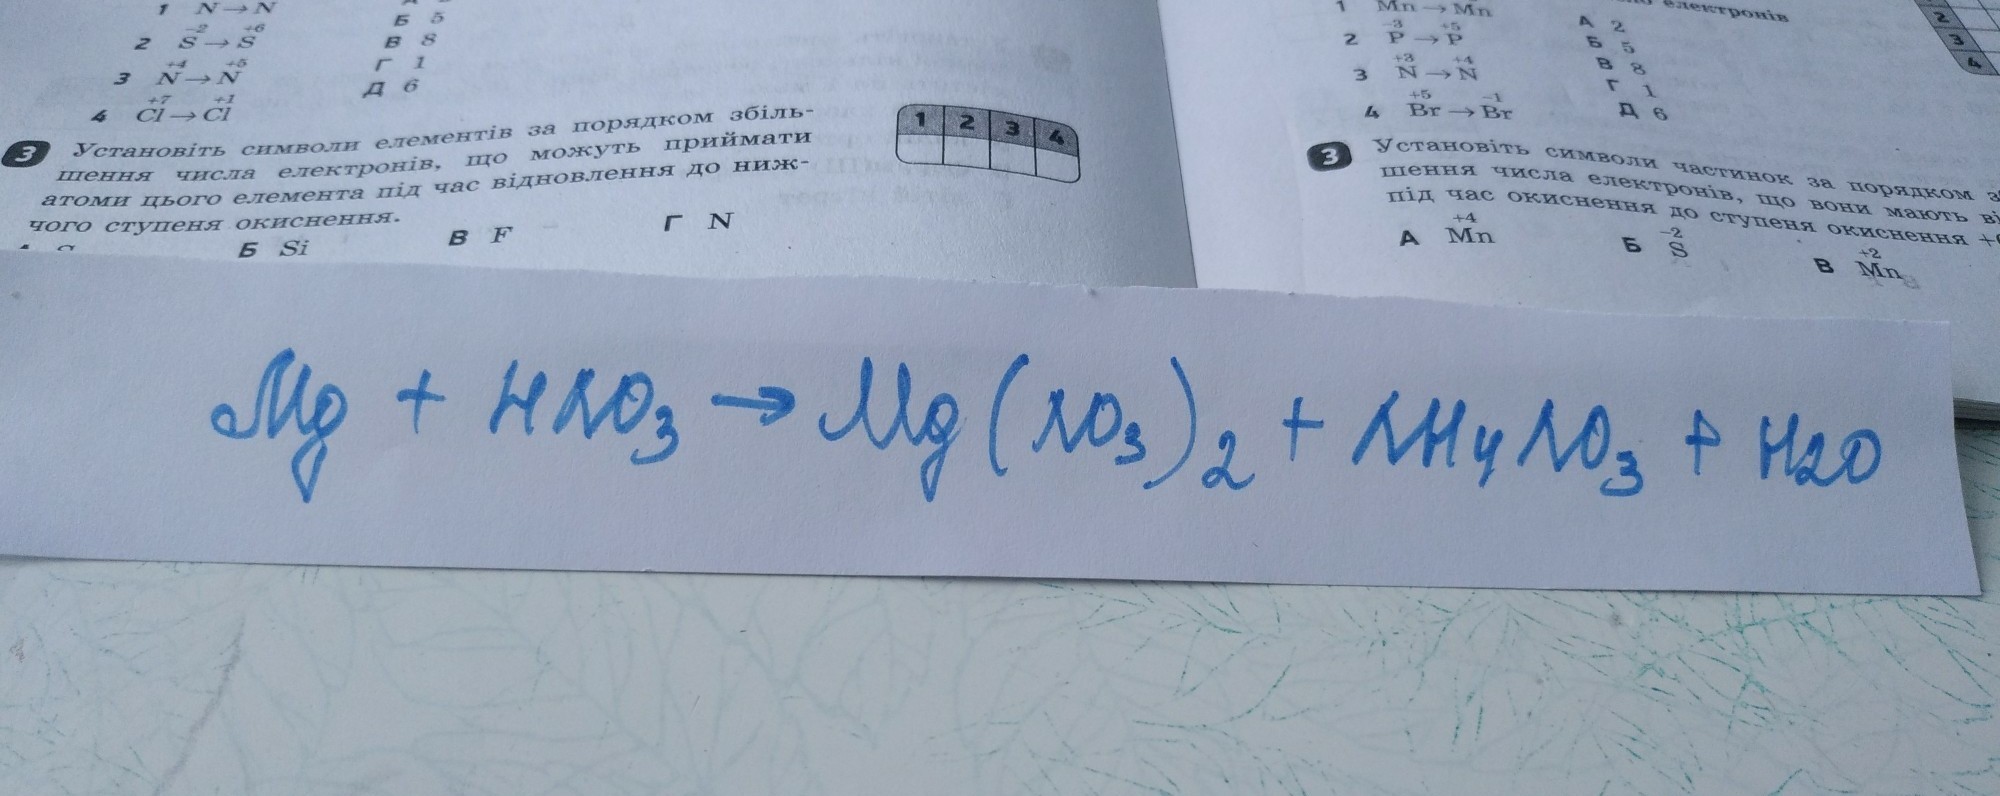 1 N→N
Б 5
-2 +6
2 S→S
В 8
+4 +5
3 N→N
Г 1
+7 +1
4 Cl→Cl
Д 6
3 Установіть символи елементів за порядком збіль-
шення числа електронів, що можуть приймати
атоми цього елемента під час відновлення до ниж-
чого ступеня окиснення.
1 2 3 4
Б Si В F Г N
електронів
1 Mn→Mn
А 2
-3 +5
2 P→P
Б 5
+3 +4
3 N→N
В 8
Г 1
+5 -1
4 Br→Br
Д 6
2
3
4
3 Установіть символи частинок за порядком
шення числа електронів, що вони мають
під час окиснення до ступеня окиснення
+4 -2 +2
А Mn Б S В Mn
Mg + HNO3 → Mg(NO3)2 + NH4NO3 + H2O